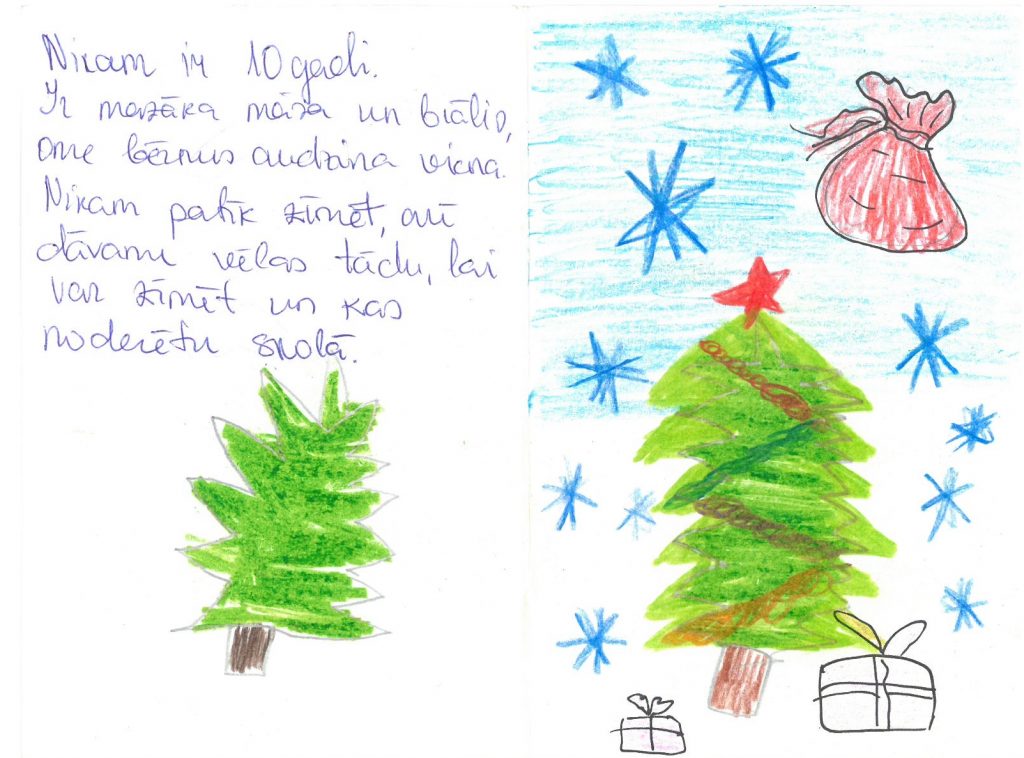 Nikam ir 10 gadi.
Ir mazāka māsa un brālis,
ome bērnus audzina viena.
Nikam patīk zīmēt, arī
dāvanu vēlas tādu, lai
var zīmēt un kas
noderētu skolā.